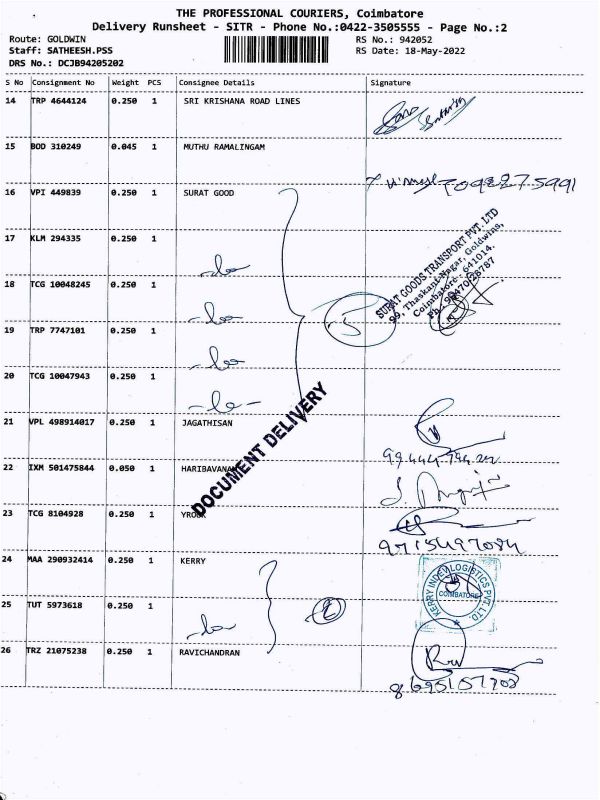 THE PROFESSIONAL COURIERS, Coimbatore
Delivery Runsheet - SITR - Phone No.:0422-3505555 - Page No.:2
Route: GOLDWIN RS No.: 942052
Staff: SATHEESH.PSS RS Date: 18-May-2022
DRS No.: DCJB94205202
S No Consignment No Weight PCS Consignee Details Signature
14 TRP 4644124 0.250 1 SRI KRISHANA ROAD LINES
15 BOD 310249 0.045 1 MUTHU RAMALINGAM
7092275991
16 VPI 449839 0.250 1 SURAT GOOD
17 KLM 294335 0.250 1
-do-
SURAT GOODS TRANSPORT PVT. LTD
99, Thaskant Nagar, Goldwins,
Coimbatore - 641014.
18 TCG 10048245 0.250 1
-do-
5
19 TRP 7747101 0.250 1
-do-
20 TCG 10047943 0.250 1
-do-
DOCUMENT DELIVERY
21 VPL 498914017 0.250 1 JAGATHISAN
22 IXM 501475844 0.050 1
23 TCG 8104928 0.250 1
9715497084
24 MAA 290932414 0.250 1 KERRY
KERRY INDEV LOGISTICS PVT. LTD.
COIMBATORE
25 TUT 5973618 0.250 1
-do-
2
26 TRZ 21075238 0.250 1 RAVICHANDRAN
8695157708